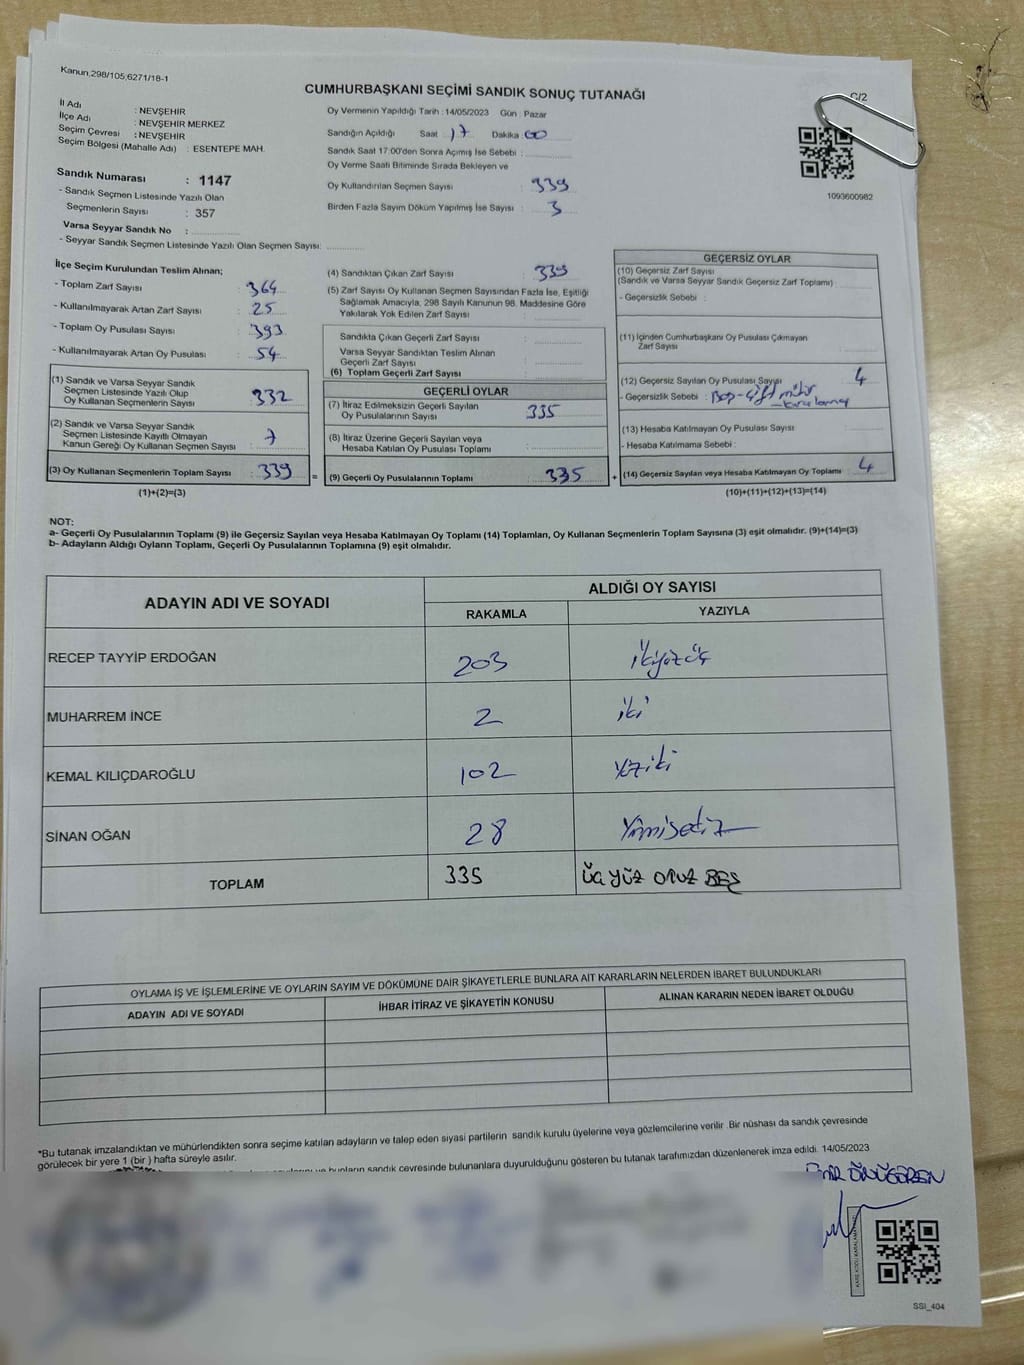 Kanun,298/105,6271/18-1
CUMHURBAŞKANI SEÇİMİ SANDIK SONUÇ TUTANAĞI
C/2
İl Adı : NEVŞEHİR
İlçe Adı : NEVŞEHİR MERKEZ
Seçim Çevresi : NEVŞEHİR
Seçim Bölgesi (Mahalle Adı) : ESENTEPE MAH.
Sandık Numarası : 1147
- Sandık Seçmen Listesinde Yazılı Olan
Seçmenlerin Sayısı : 357
Varsa Seyyar Sandık No :
- Seyyar Sandık Seçmen Listesinde Yazılı Olan Seçmen Sayısı:
Oy Vermenin Yapıldığı Tarih : 14/05/2023 Gün : Pazar
Sandığın Açıldığı Saat 17 Dakika 00
Sandık Saat 17:00'den Sonra Açımış İse Sebebi :
Oy Verme Saati Bitiminde Sırada Bekleyen ve
Oy Kullandırılan Seçmen Sayısı : 339
Birden Fazla Sayım Döküm Yapılmış İse Sayısı : 3
1093600982
İlçe Seçim Kurulundan Teslim Alınan;
- Toplam Zarf Sayısı : 364
- Kullanılmayarak Artan Zarf Sayısı : 25
- Toplam Oy Pusulası Sayısı : 393
- Kullanılmayarak Artan Oy Pusulası : 54
(1) Sandık ve Varsa Seyyar Sandık
Seçmen Listesinde Yazılı Olup
Oy Kullanan Seçmenlerin Sayısı : 332
(2) Sandık ve Varsa Seyyar Sandık
Seçmen Listesinde Kayıtlı Olmayan
Kanun Gereği Oy Kullanan Seçmen Sayısı : 7
(3) Oy Kullanan Seçmenlerin Toplam Sayısı : 339 =
(1)+(2)=(3)
(4) Sandıktan Çıkan Zarf Sayısı : 339
(5) Zarf Sayısı Oy Kullanan Seçmen Sayısından Fazla İse, Eşitliği
Sağlamak Amacıyla, 298 Sayılı Kanunun 98. Maddesine Göre
Yakılarak Yok Edilen Zarf Sayısı :
Sandıkta Çıkan Geçerli Zarf Sayısı :
Varsa Seyyar Sandıktan Teslim Alınan
Geçerli Zarf Sayısı :
(6) Toplam Geçerli Zarf Sayısı :
GEÇERLİ OYLAR
(7) İtiraz Edilmeksizin Geçerli Sayılan
Oy Pusulalarının Sayısı : 335
(8) İtiraz Üzerine Geçerli Sayılan veya
Hesaba Katılan Oy Pusulası Toplamı :
(9) Geçerli Oy Pusulalarının Toplamı : 335 +
GEÇERSİZ OYLAR
(10) Geçersiz Zarf Sayısı
(Sandık ve Varsa Seyyar Sandık Geçersiz Zarf Toplamı) :
- Geçersizlik Sebebi :
(11) İçinden Cumhurbaşkanı Oy Pusulası Çıkmayan
Zarf Sayısı :
(12) Geçersiz Sayılan Oy Pusulası Sayısı : 4
- Geçersizlik Sebebi : Boş-çift mühür
(13) Hesaba Katılmayan Oy Pusulası Sayısı :
- Hesaba Katılmama Sebebi :
(14) Geçersiz Sayılan veya Hesaba Katılmayan Oy Toplamı : 4
(10)+(11)+(12)+(13)=(14)
NOT:
a- Geçerli Oy Pusulalarının Toplamı (9) ile Geçersiz Sayılan veya Hesaba Katılmayan Oy Toplamı (14) Toplamları, Oy Kullanan Seçmenlerin Toplam Sayısına (3) eşit olmalıdır. (9)+(14)=(3)
b- Adayların Aldığı Oyların Toplamı, Geçerli Oy Pusulalarının Toplamına (9) eşit olmalıdır.
ADAYIN ADI VE SOYADI ALDIĞI OY SAYISI
RAKAMLA YAZIYLA
RECEP TAYYİP ERDOĞAN 203 ikiyüzüç
MUHARREM İNCE 2 iki
KEMAL KILIÇDAROĞLU 102 Yüziki
SİNAN OĞAN 28 Yirmisekiz
TOPLAM 335 ÜÇ YÜZ OTUZ BEŞ
OYLAMA İŞ VE İŞLEMLERİNE VE OYLARIN SAYIM VE DÖKÜMÜNE DAİR ŞİKAYETLERLE BUNLARA AİT KARARLARIN NELERDEN İBARET BULUNDUKLARI
ADAYIN ADI VE SOYADI İHBAR İTİRAZ VE ŞİKAYETİN KONUSU ALINAN KARARIN NEDEN İBARET OLDUĞU
*Bu tutanak imzalandıktan ve mühürlendikten sonra seçime katılan adayların ve talep eden siyasi partilerin sandık kurulu üyelerine veya gözlemcilerine verilir. Bir nüshası da sandık çevresinde
görülecek bir yere 1 (bir ) hafta süreyle asılır.
ve bunların sandık çevresinde bulunanlara duyurulduğunu gösteren bu tutanak tarafımızdan düzenlenerek imza edildi. 14/05/2023
SSI_404